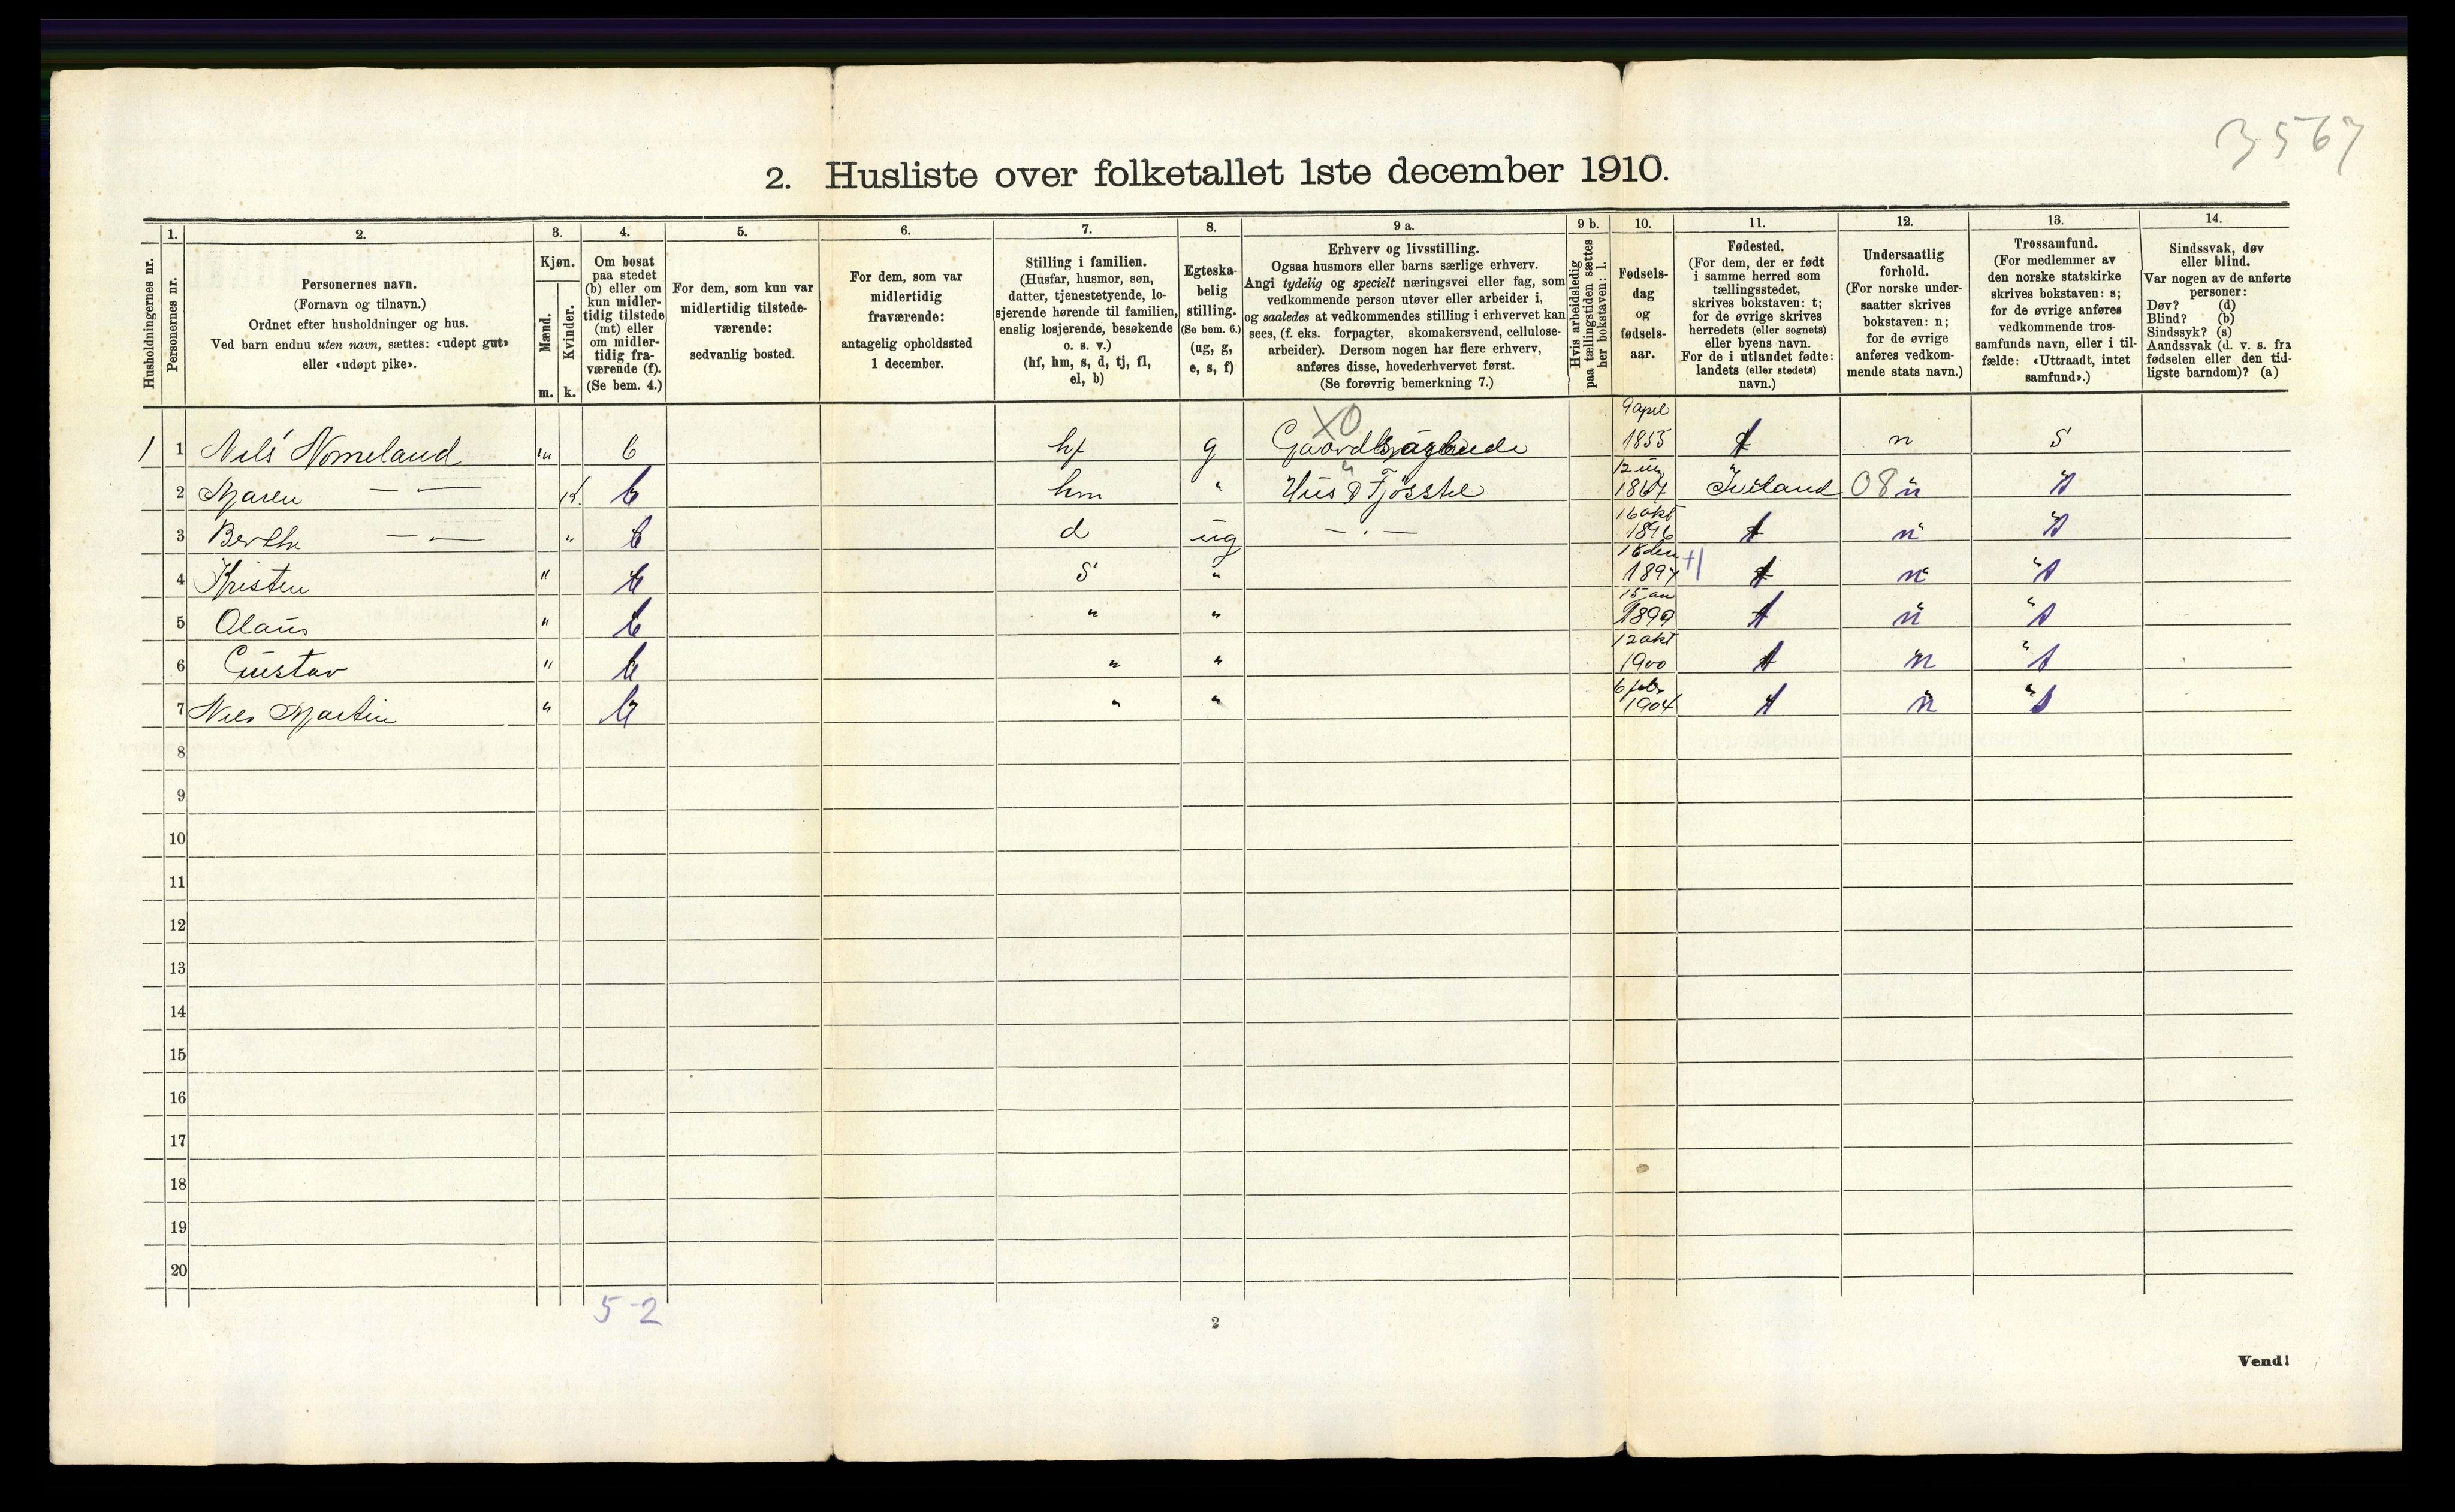 3567
2. Husliste over folketallet 1ste december 1910.
Husholdningernes nr.
1.
Personernes nr.
2.
Personernes navn.
(Fornavn og tilnavn.)
Ordnet efter husholdninger og hus.
Ved barn endnu uten navn, sættes: «udøpt gut»
eller «udøpt pike».
3.
Kjøn.
Mænd.
m.
Kvinder.
k.
4.
Om bosat
paa stedet
(b) eller om
kun midler-
tidig tilstede
(mt) eller
om midler-
tidig fra-
værende (f).
(Se bem. 4.)
5.
For dem, som kun var
midlertidig tilstede-
værende:
sedvanlig bosted.
6.
For dem, som var
midlertidig
fraværende:
antagelig opholdssted
1 december.
7.
Stilling i familien.
(Husfar, husmor, søn,
datter, tjenestetyende, lo-
sjerende hørende til familien,
enslig losjerende, besøkende
o. s. v.)
(hf, hm, s, d, tj, fl,
el, b)
8.
Egteska-
belig
stilling.
(Se bem. 6.)
(ug, g,
e, s, f)
9 a.
Erhverv og livsstilling.
Ogsaa husmors eller barns særlige erhverv.
Angi tydelig og specielt næringsvei eller fag, som
vedkommende person utøver eller arbeider i,
og saaledes at vedkommendes stilling i erhvervet kan
sees, (f. eks. forpagter, skomakersvend, cellulose-
arbeider). Dersom nogen har flere erhverv,
anføres disse, hovederhvervet først.
(Se forøvrig bemerkning 7.)
9 b.
Hvis arbeidsledig
paa tællingstiden sættes
her bokstaven: l.
10.
Fødsels-
dag
og
fødsels-
aar.
11.
Fødested.
(For dem, der er født
i samme herred som
tællingsstedet,
skrives bokstaven: t;
for de øvrige skrives
herredets (eller sognets)
eller byens navn.
For de i utlandet fødte:
landets (eller stedets)
navn.)
12.
Undersaatlig
forhold.
(For norske under-
saatter skrives
bokstaven: n;
for de øvrige
anføres vedkom-
mende stats navn.)
13.
Trossamfund.
(For medlemmer av
den norske statskirke
skrives bokstaven: s;
for de øvrige anføres
vedkommende tros-
samfunds navn, eller i til-
fælde: «Uttraadt, intet
samfund».)
14.
Sindssvak, døv
eller blind.
Var nogen av de anførte
personer:
Døv? (d)
Blind? (b)
Sindssyk? (s)
Aandssvak (d. v. s. fra
fødselen eller den tid-
ligste barndom)? (a)
1 1 Nils Nomeland m b hf g X0 9 april 1855 t n s
2 Maren — — k b hm " Hus & Fjösstel 1867 Iveland 08 n s
3 Berthe — — " b d ug — " — 16 okt 1896 t n s
4 Kristen " b s " 1897 +1 t n s
5 Olaus " b " " 1899 t n s
6 Gustav " b " " 12 okt 1900 t n s
7 Nils Martin " b " " 6 febr 1904 t n s
8
9
10
11
12
13
14
15
16
17
18
19
20
5-2
2
Vend!